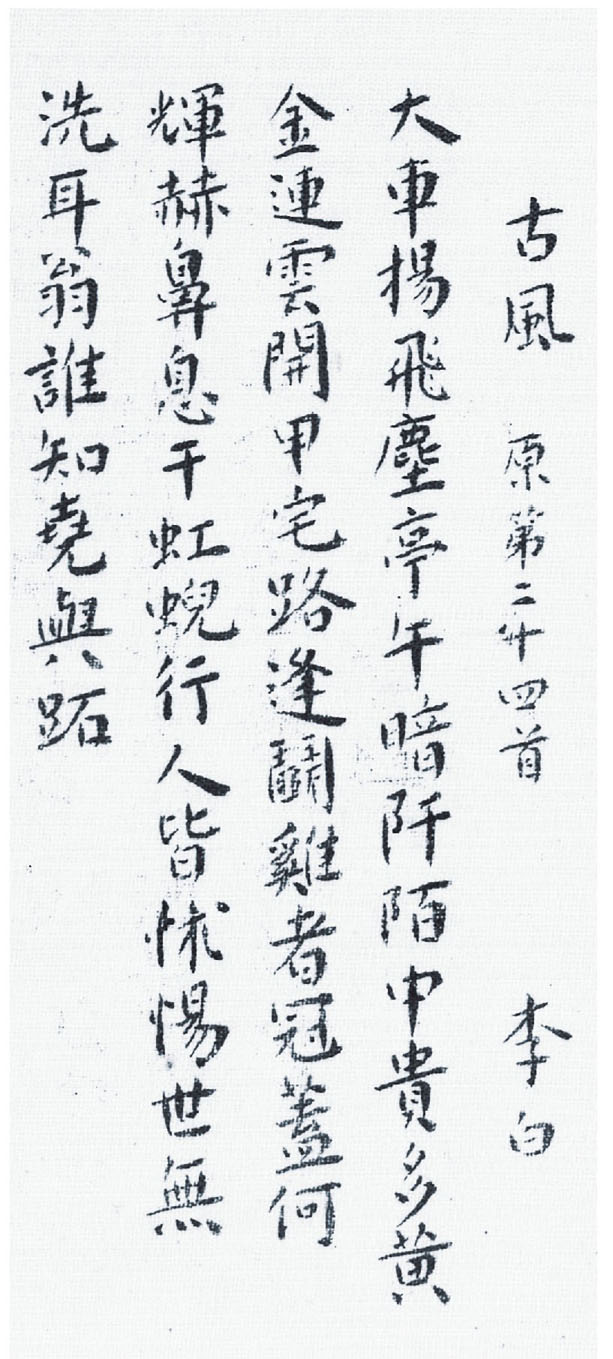 古風 原第二十四首 李白
大車揚飛塵亭午暗阡陌中貴多黄
金連雲開甲宅路逢鬭雞者冠蓋何
輝赫鼻息干虹蜺行人皆怵惕世無
洗耳翁誰知堯與跖